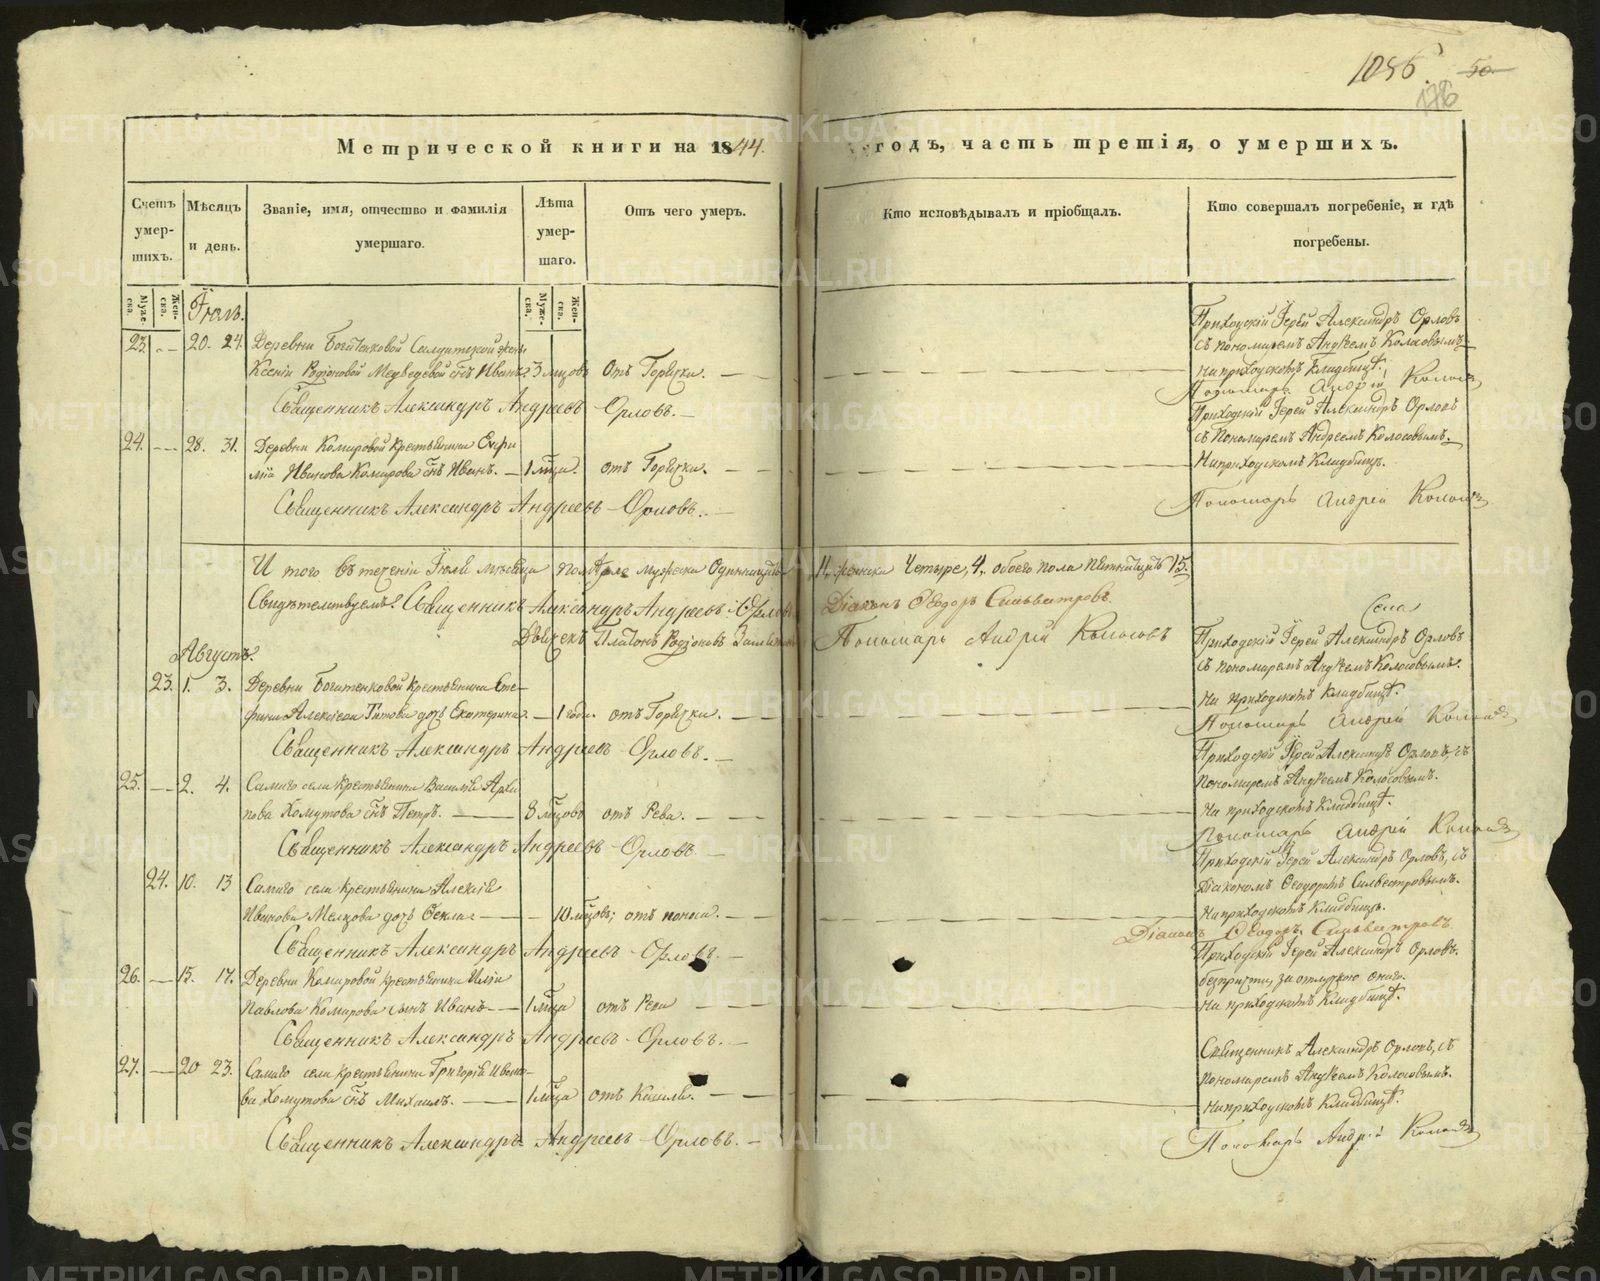 1056. 50
176
Метрической книги на 1844. годъ, часть третія, о умершихъ.
Счетъ умер-шихъ.
Мѣсяцъ и день.
Званіе, имя, отчество и фамилія умершаго.
Лѣта умер-шаго.
Отъ чего умеръ.
Кто исповѣдывалъ и пріобщалъ.
Кто совершалъ погребеніе, и гдѣ погребены.
Муже-ска.
Жен-ска.
Іюль.
Муже-ска.
Жен-ска.
Приходскій Іерей Александръ Орловъ
23. — 20. 24. Деревни Богатенковой Салдатской жены
съ пономаремъ Андреемъ Колосовымъ
Ксеніи Родіоновой Медведевой снъ Иванъ 3 мцовъ отъ Горячки.
На приходскомъ Кладбищѣ.
Пономарь Андрей Колосовъ
Священникъ Александръ Андреевъ Орловъ.
Приходскій Іерей Александръ Орловъ
24. — 28. 31. Деревни Комаровой крестьянина
съ Пономаремъ Андреемъ Колосовымъ.
Иванова Комарова снъ Иванъ. — 1 мца. отъ Горячки.
На приходскомъ Кладбищѣ.
Священникъ Александръ Андреевъ Орловъ.
Пономарь Андрей Колосовъ
И того въ теченіи Іюля мѣсяца померло мужеска Одиннатцать 11, женска Четыре, 4, обоего пола Пятнатцать 15.
Свидѣтельствуемъ: Священникъ Александръ Андреевъ Орловъ Діаконъ Ѳеодоръ Сильвестровъ.
Дьячекъ Платонъ Родіоновъ Пономарь Андрей Колосовъ
Села
Приходскій Іерей Александръ Орловъ
Августъ.
съ пономаремъ Андреемъ Колосовымъ.
23. 1. 3. Деревни Богатенковой крестьянина
На приходскомъ Кладбищѣ.
Алексѣева Титова дочь Екатерина. — 1 года. отъ Горячки.
Пономарь Андрей Колосовъ
Священникъ Александръ Андреевъ Орловъ.
Приходскій Іерей Александръ Орловъ, съ
25. — 2. 4. Самаго села крестьянина Василія Архи
Пономаремъ Андреемъ Колосовымъ.
пова Хомутова снъ Петръ. — 8 мцовъ отъ Рева.
На приходскомъ Кладбищѣ.
Пономарь Андрей Колосовъ
Священникъ Александръ Андреевъ Орловъ.
Приходскій Іерей Александръ Орловъ, съ
24. 10. 13 Самаго села крестьянина Алексія
Діакономъ Ѳеодоромъ Силвестровымъ.
Иванова Мелкова дочь Ѳекла — 10 мцовъ; отъ поноса.
На приходскомъ Кладбищѣ.
Діаконъ Ѳеодоръ Сильвестровъ
Священникъ Александръ Андреевъ Орловъ.
Приходскій Іерей Александръ Орловъ.
26. — 15. 17. Деревни Комаровой крестьянина Иліи
безъ причта, за отлучкою онаго.
Павлова Комарова сынъ Иванъ — 1 мца отъ Рева
На приходскомъ Кладбищѣ.
Священникъ Александръ Андреевъ Орловъ.
Священникъ Александръ Орловъ, съ
27. — 20 23. Самаго села крестьянина Григорія Ивано-
пономаремъ Андреемъ Колосовымъ.
ва Хомутова снъ Михаилъ. — 1 мца отъ Кашля.
На приходскомъ Кладбищѣ.
Священникъ Александръ Андреевъ Орловъ.
Пономарь Андрей Колосовъ
METRIKI.GASO-URAL.RU